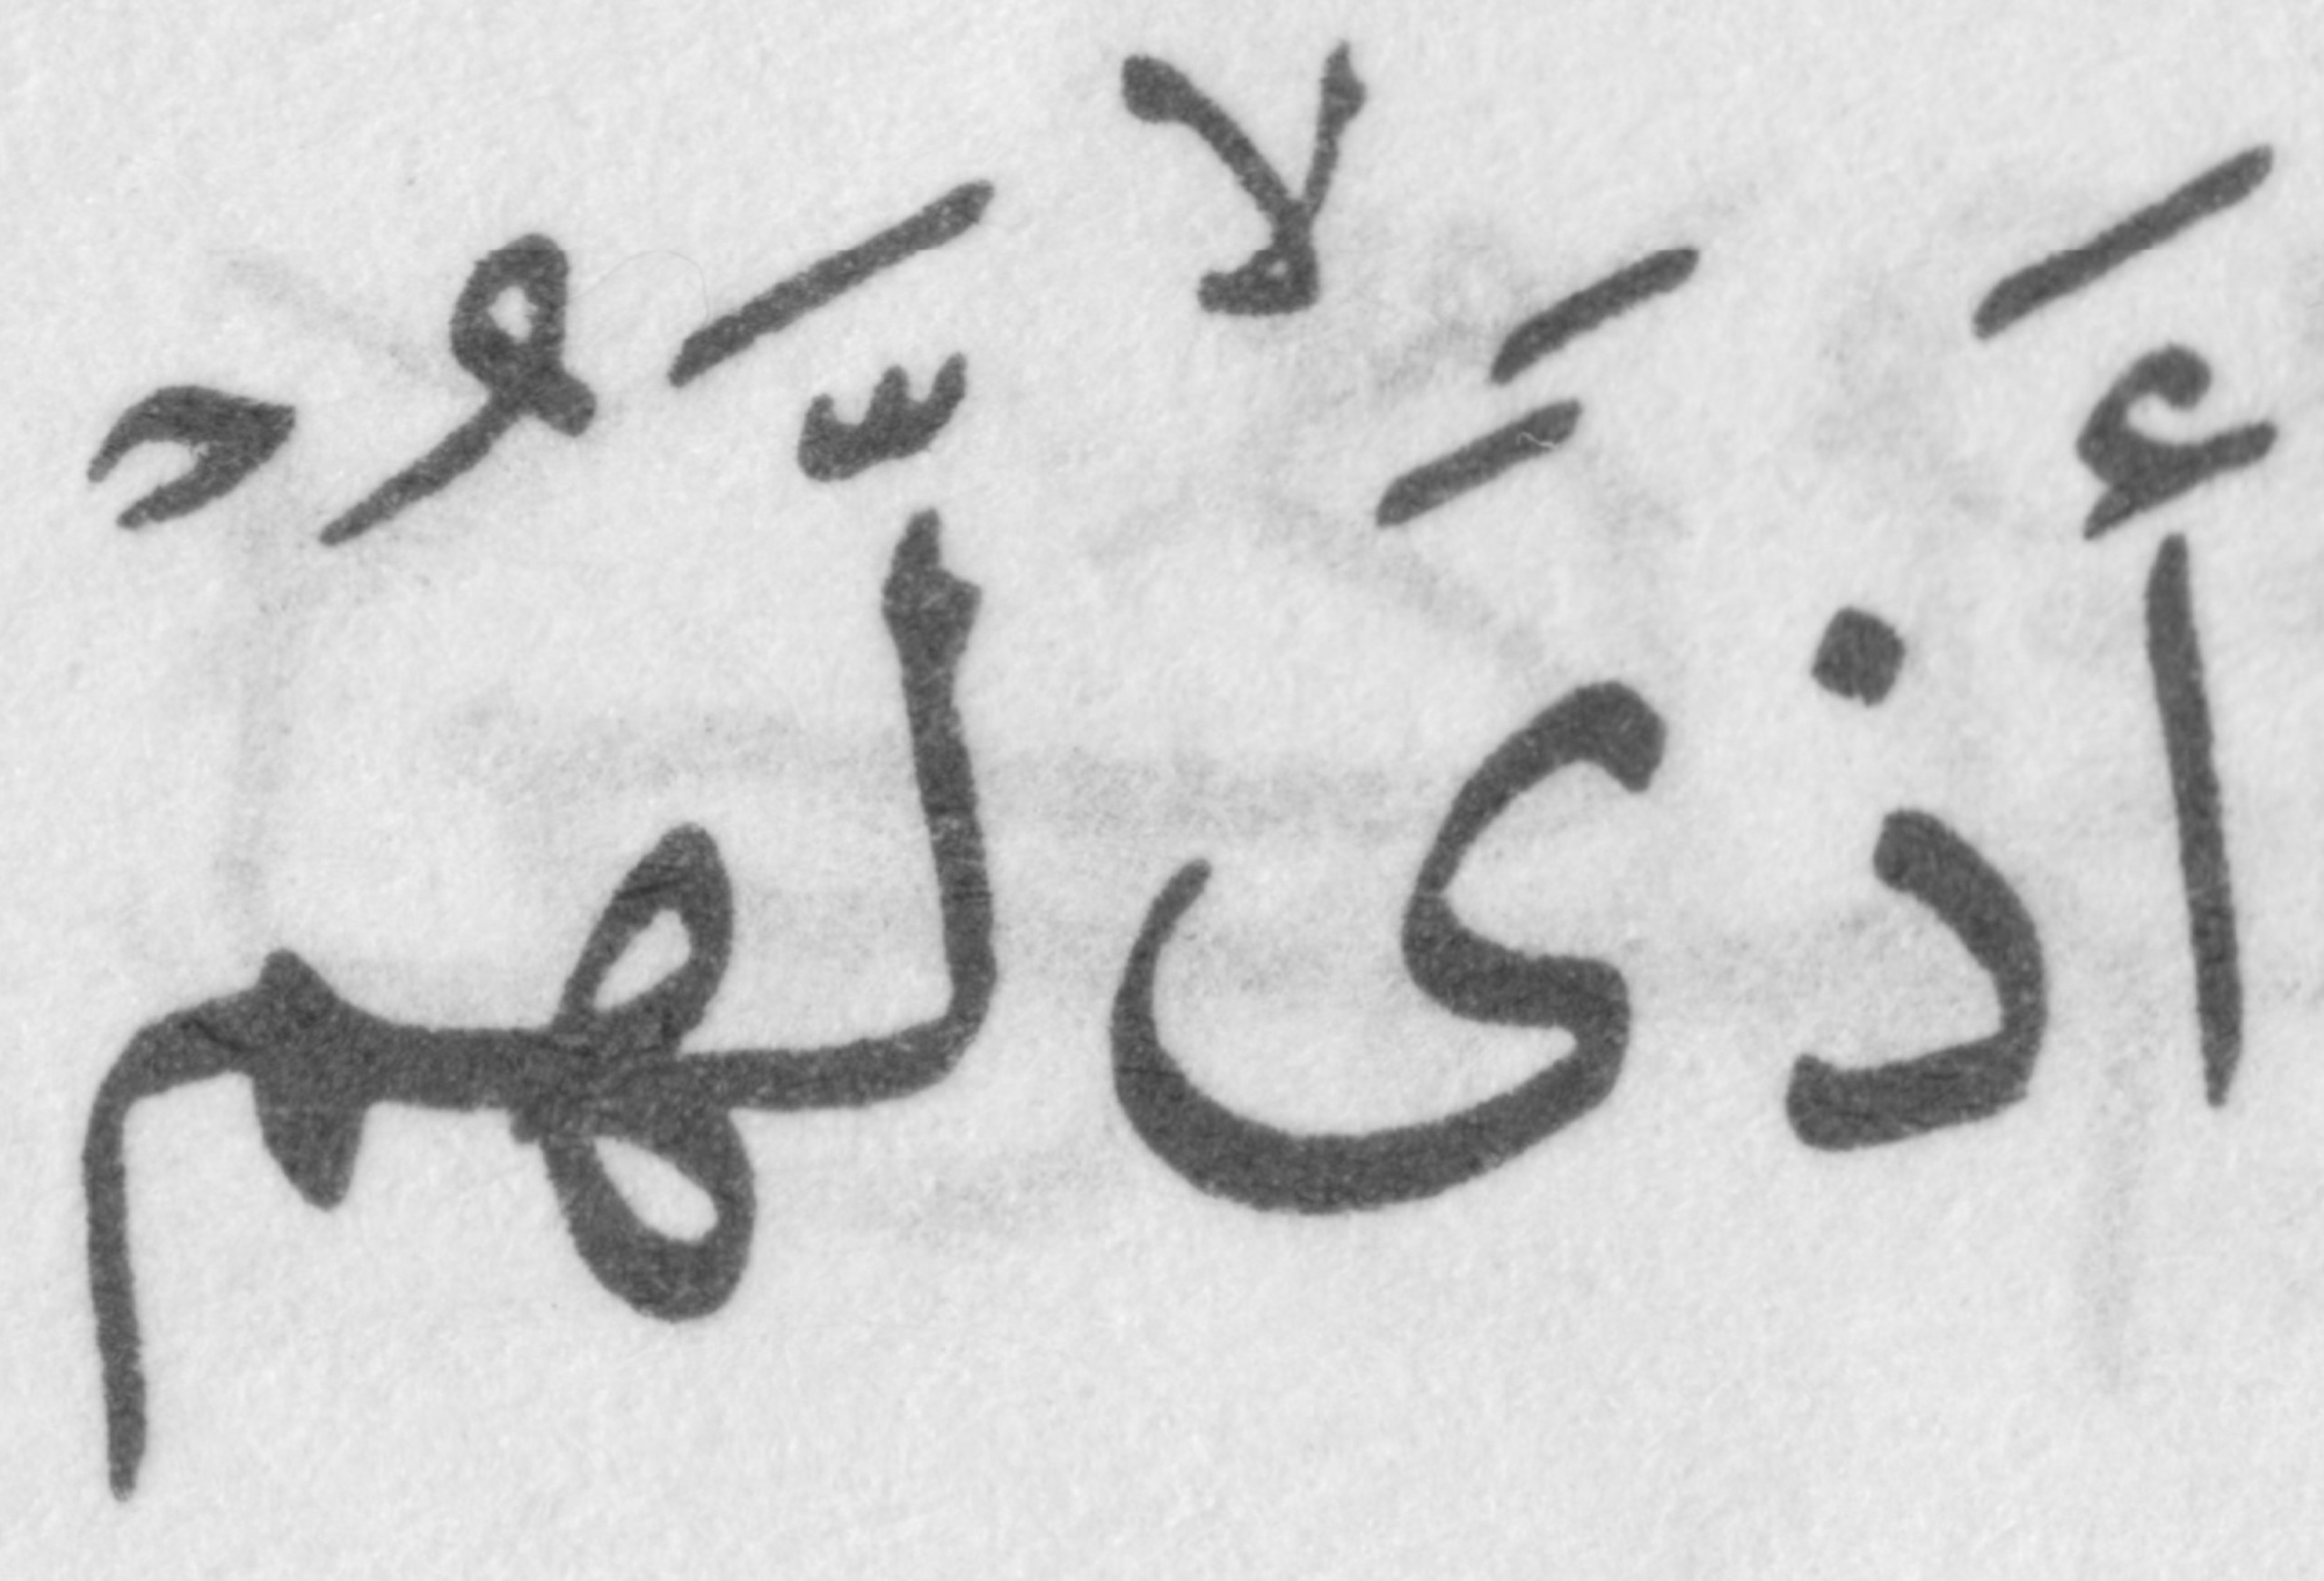 أَذًى ۙ لَّهُمْ